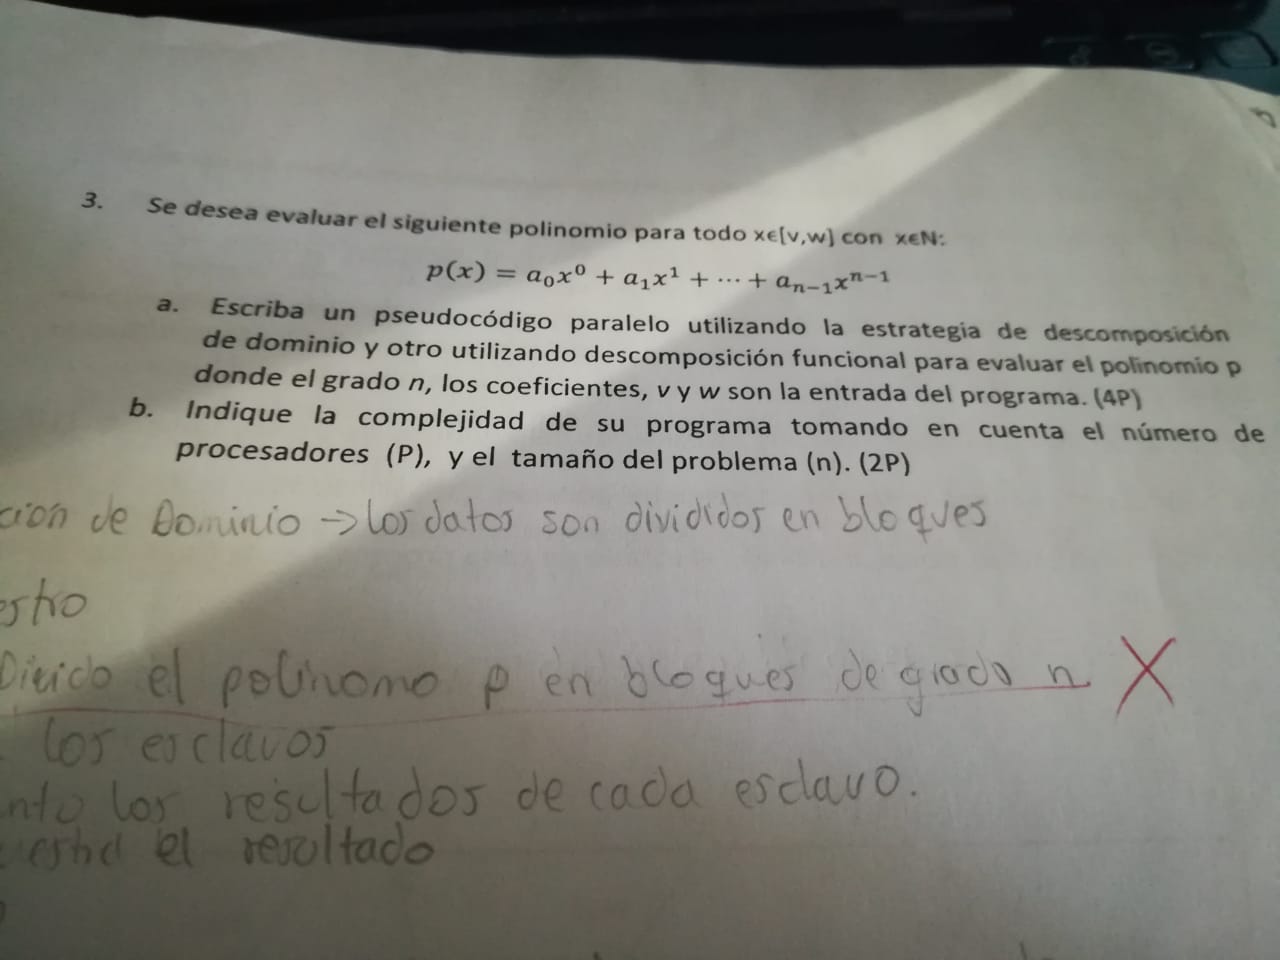 3. Se desea evaluar el siguiente polinomio para todo xϵ[v,w] con xϵN:
p(x) = a₀x⁰ + a₁x¹ + ⋯ + aₙ₋₁xⁿ⁻¹
a. Escriba un pseudocódigo paralelo utilizando la estrategia de descomposición
de dominio y otro utilizando descomposición funcional para evaluar el polinomio p
donde el grado n, los coeficientes, v y w son la entrada del programa. (4P)
b. Indique la complejidad de su programa tomando en cuenta el número de
procesadores (P), y el tamaño del problema (n). (2P)
ción de Dominio → los datos son divididos en bloques
estro
Divido el polinomo p en bloques de grado n X
los esclavos
nto los resultados de cada esclavo.
el resultado